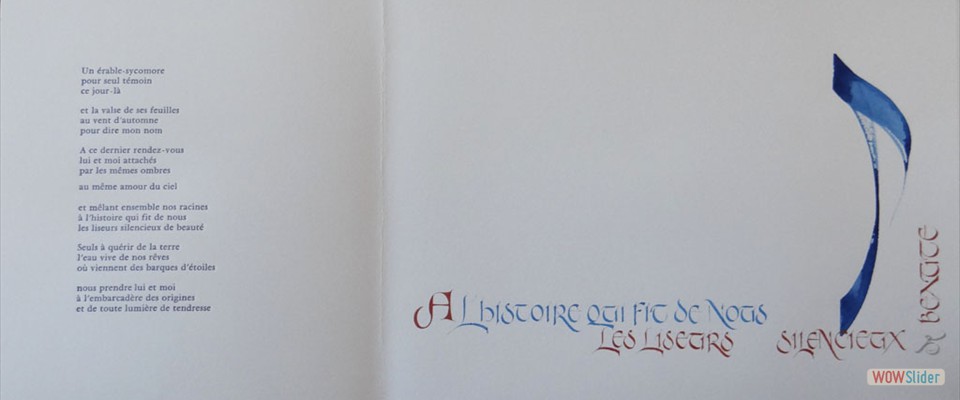 Un érable-sycomore
pour seul témoin
ce jour-là
et la valse de ses feuilles
au vent d'automne
pour dire mon nom
A ce dernier rendez-vous
lui et moi attachés
par les mêmes ombres
au même amour du ciel
et mêlant ensemble nos racines
à l'histoire qui fit de nous
les liseurs silencieux de beauté
Seuls à quérir de la terre
l'eau vive de nos rêves
où viennent des barques d'étoiles
nous prendre lui et moi
à l'embarcadère des origines
et de toute lumière de tendresse
A L'histoire qui fit de nous
Les Liseurs silencieux
de beauté
WOWSlider